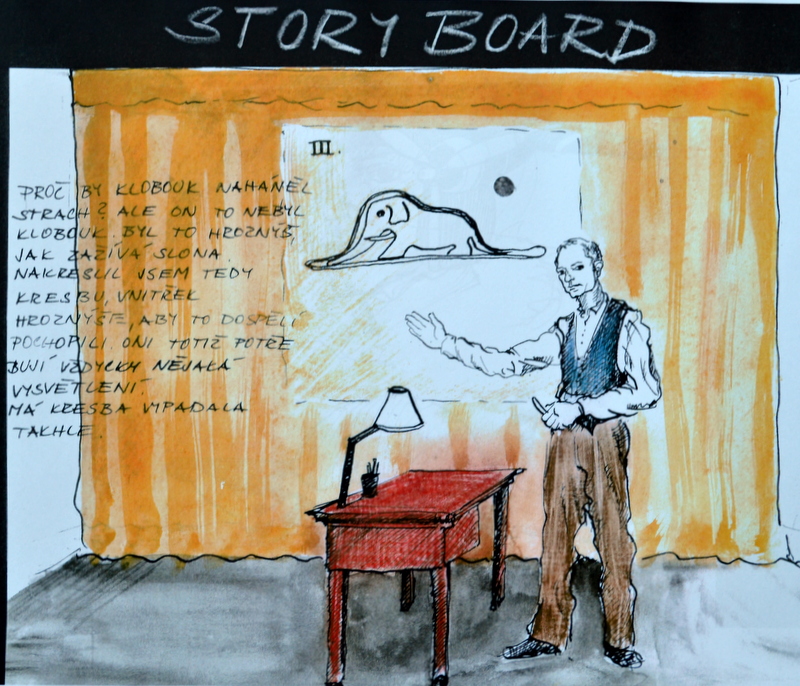 STORY BOARD
III.
PROČ BY KLOBOUK NAHÁNĚL
STRACH? ALE ON TO NEBYL
KLOBOUK. BYL TO HROZNÝŠ,
JAK ZAŽÍVÁ SLONA.
NAKRESLIL JSEM TEDY
KRESBU, VNITŘEK
HROZNÝŠTE, ABY TO DOSPĚLÍ
POCHOPILI. ONI TOTIŽ POTŘE
BUJÍ VŽDYCKY NĚJAKÁ
VYSVĚTLENÍ.
MÁ KRESBA VYPADALA
TAKHLE.